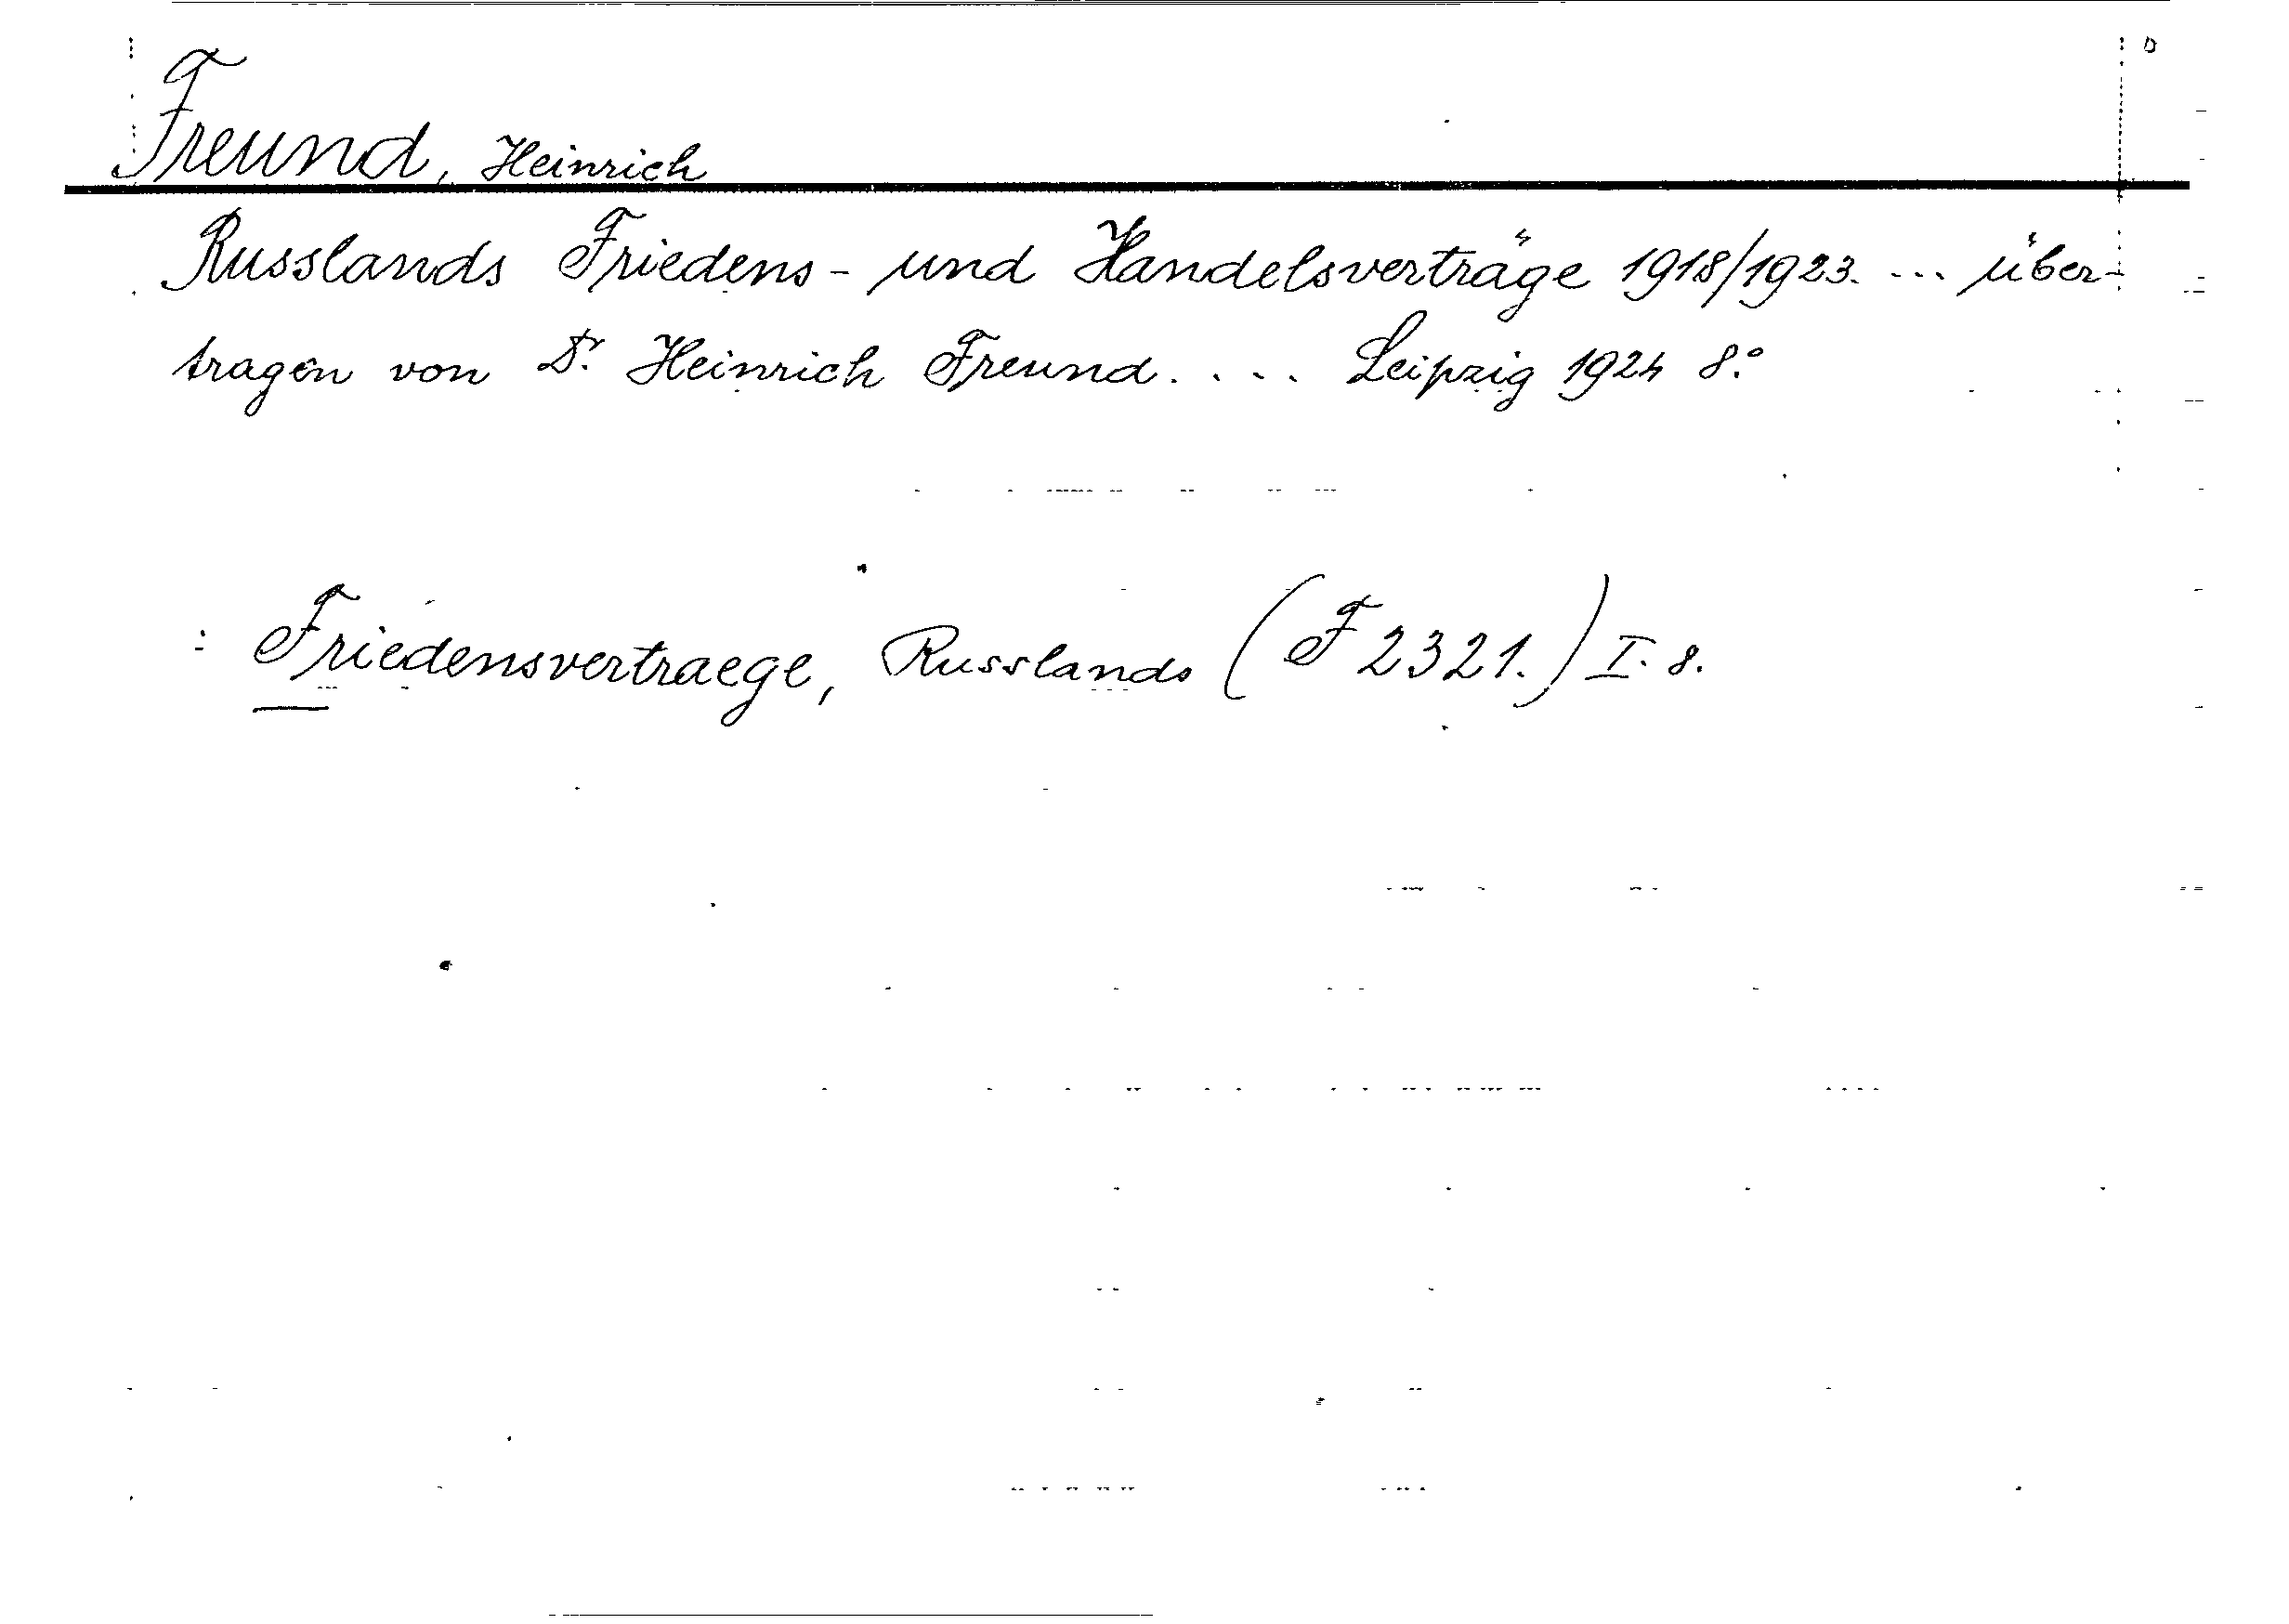 Freund, Heinrich
Russlands Friedens- und Handelsverträge 1918/1923. ... über-
tragen von Dr. Heinrich Freund. ... Leipzig 1924 8.°
: Friedensvertraege, Russlands (F 2321.) I. 8.